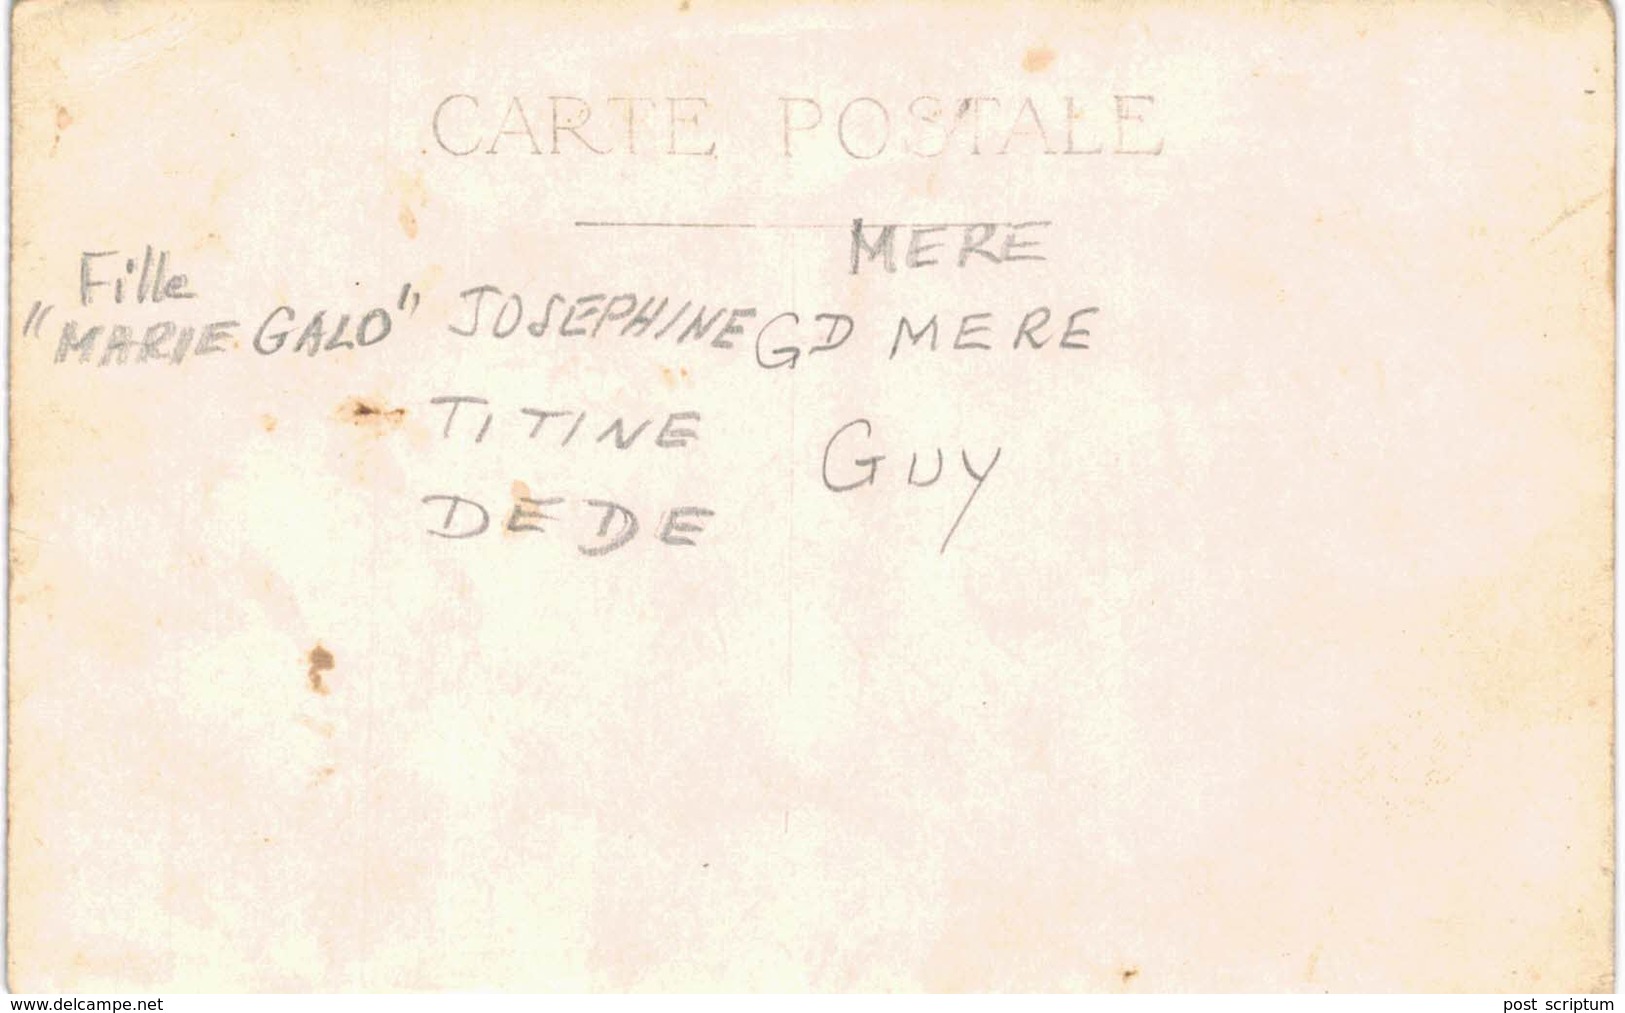 CARTE POSTALE
MERE
Fille
"MARIE GALO" JOSEPHINE GD MERE
TITINE
GUY
DEDE
www.delcampe.net
post scriptum